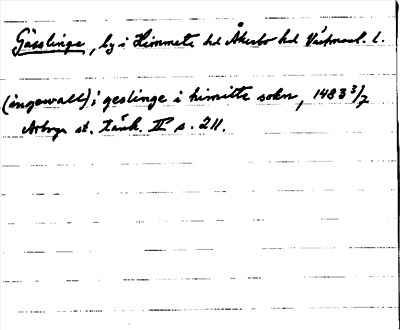 Gässlinge, by i Himmeta sn Åkerbo hd Västmanl. l.
(ingewall) i geslinge i himitte sokn, 1483 3/7
Arboga st. tänk. II s. 211.